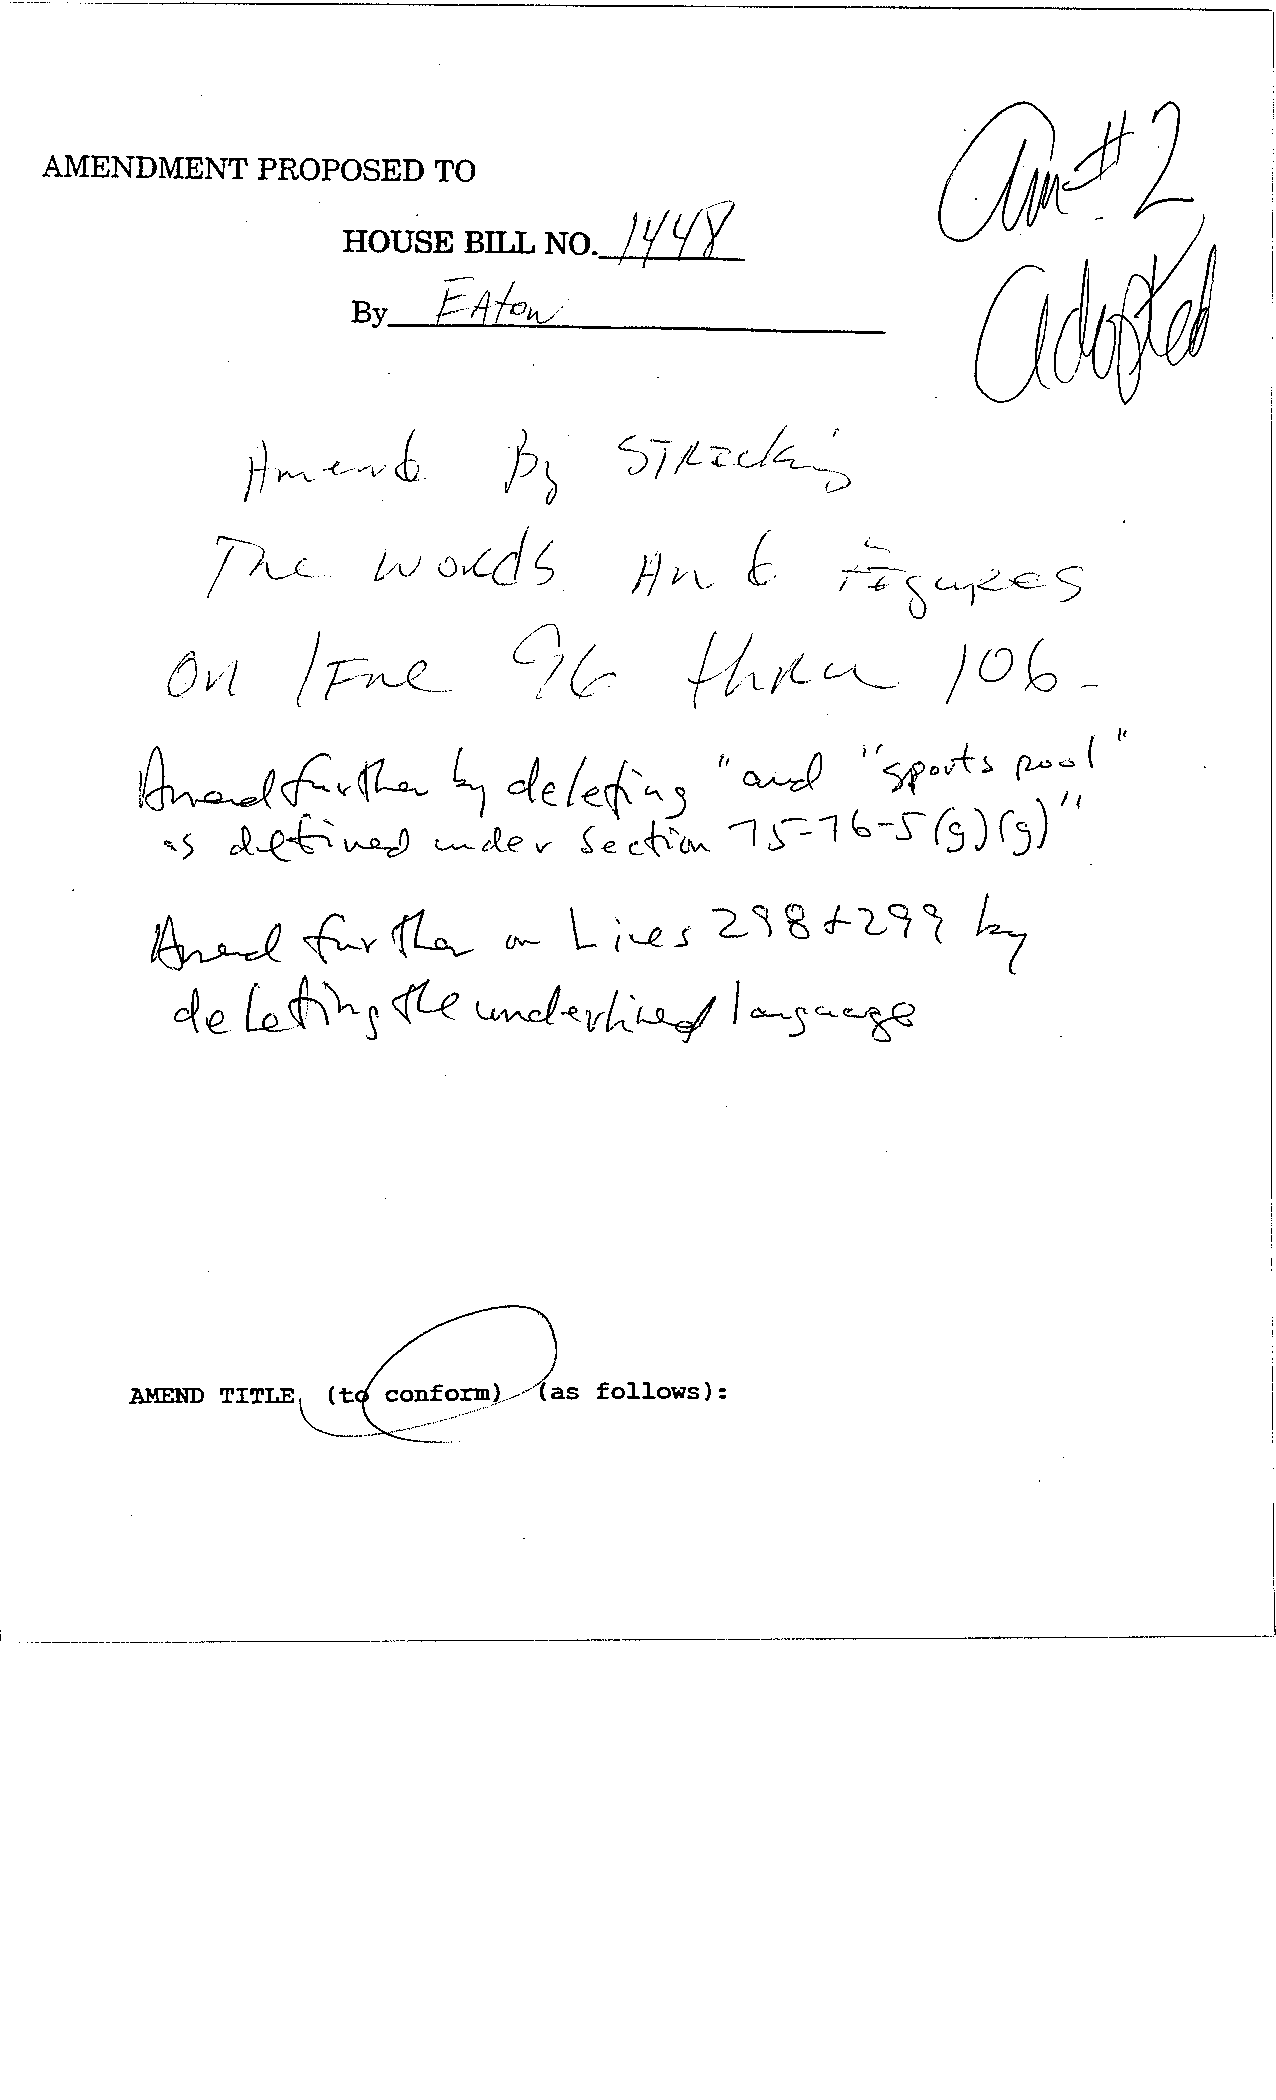 Am #2
AMENDMENT PROPOSED TO
HOUSE BILL NO. 1448
Adopted
By EAton
Amend By STRIcking
The words And FIgures
On lIne 96 thru 106-
Amend further by deleting "and "sports pool"
as defined under section 75-76-5(g)(g)"
Amend further on Lines 298+299 by
deleting the underlined language
AMEND TITLE (to conform) (as follows):